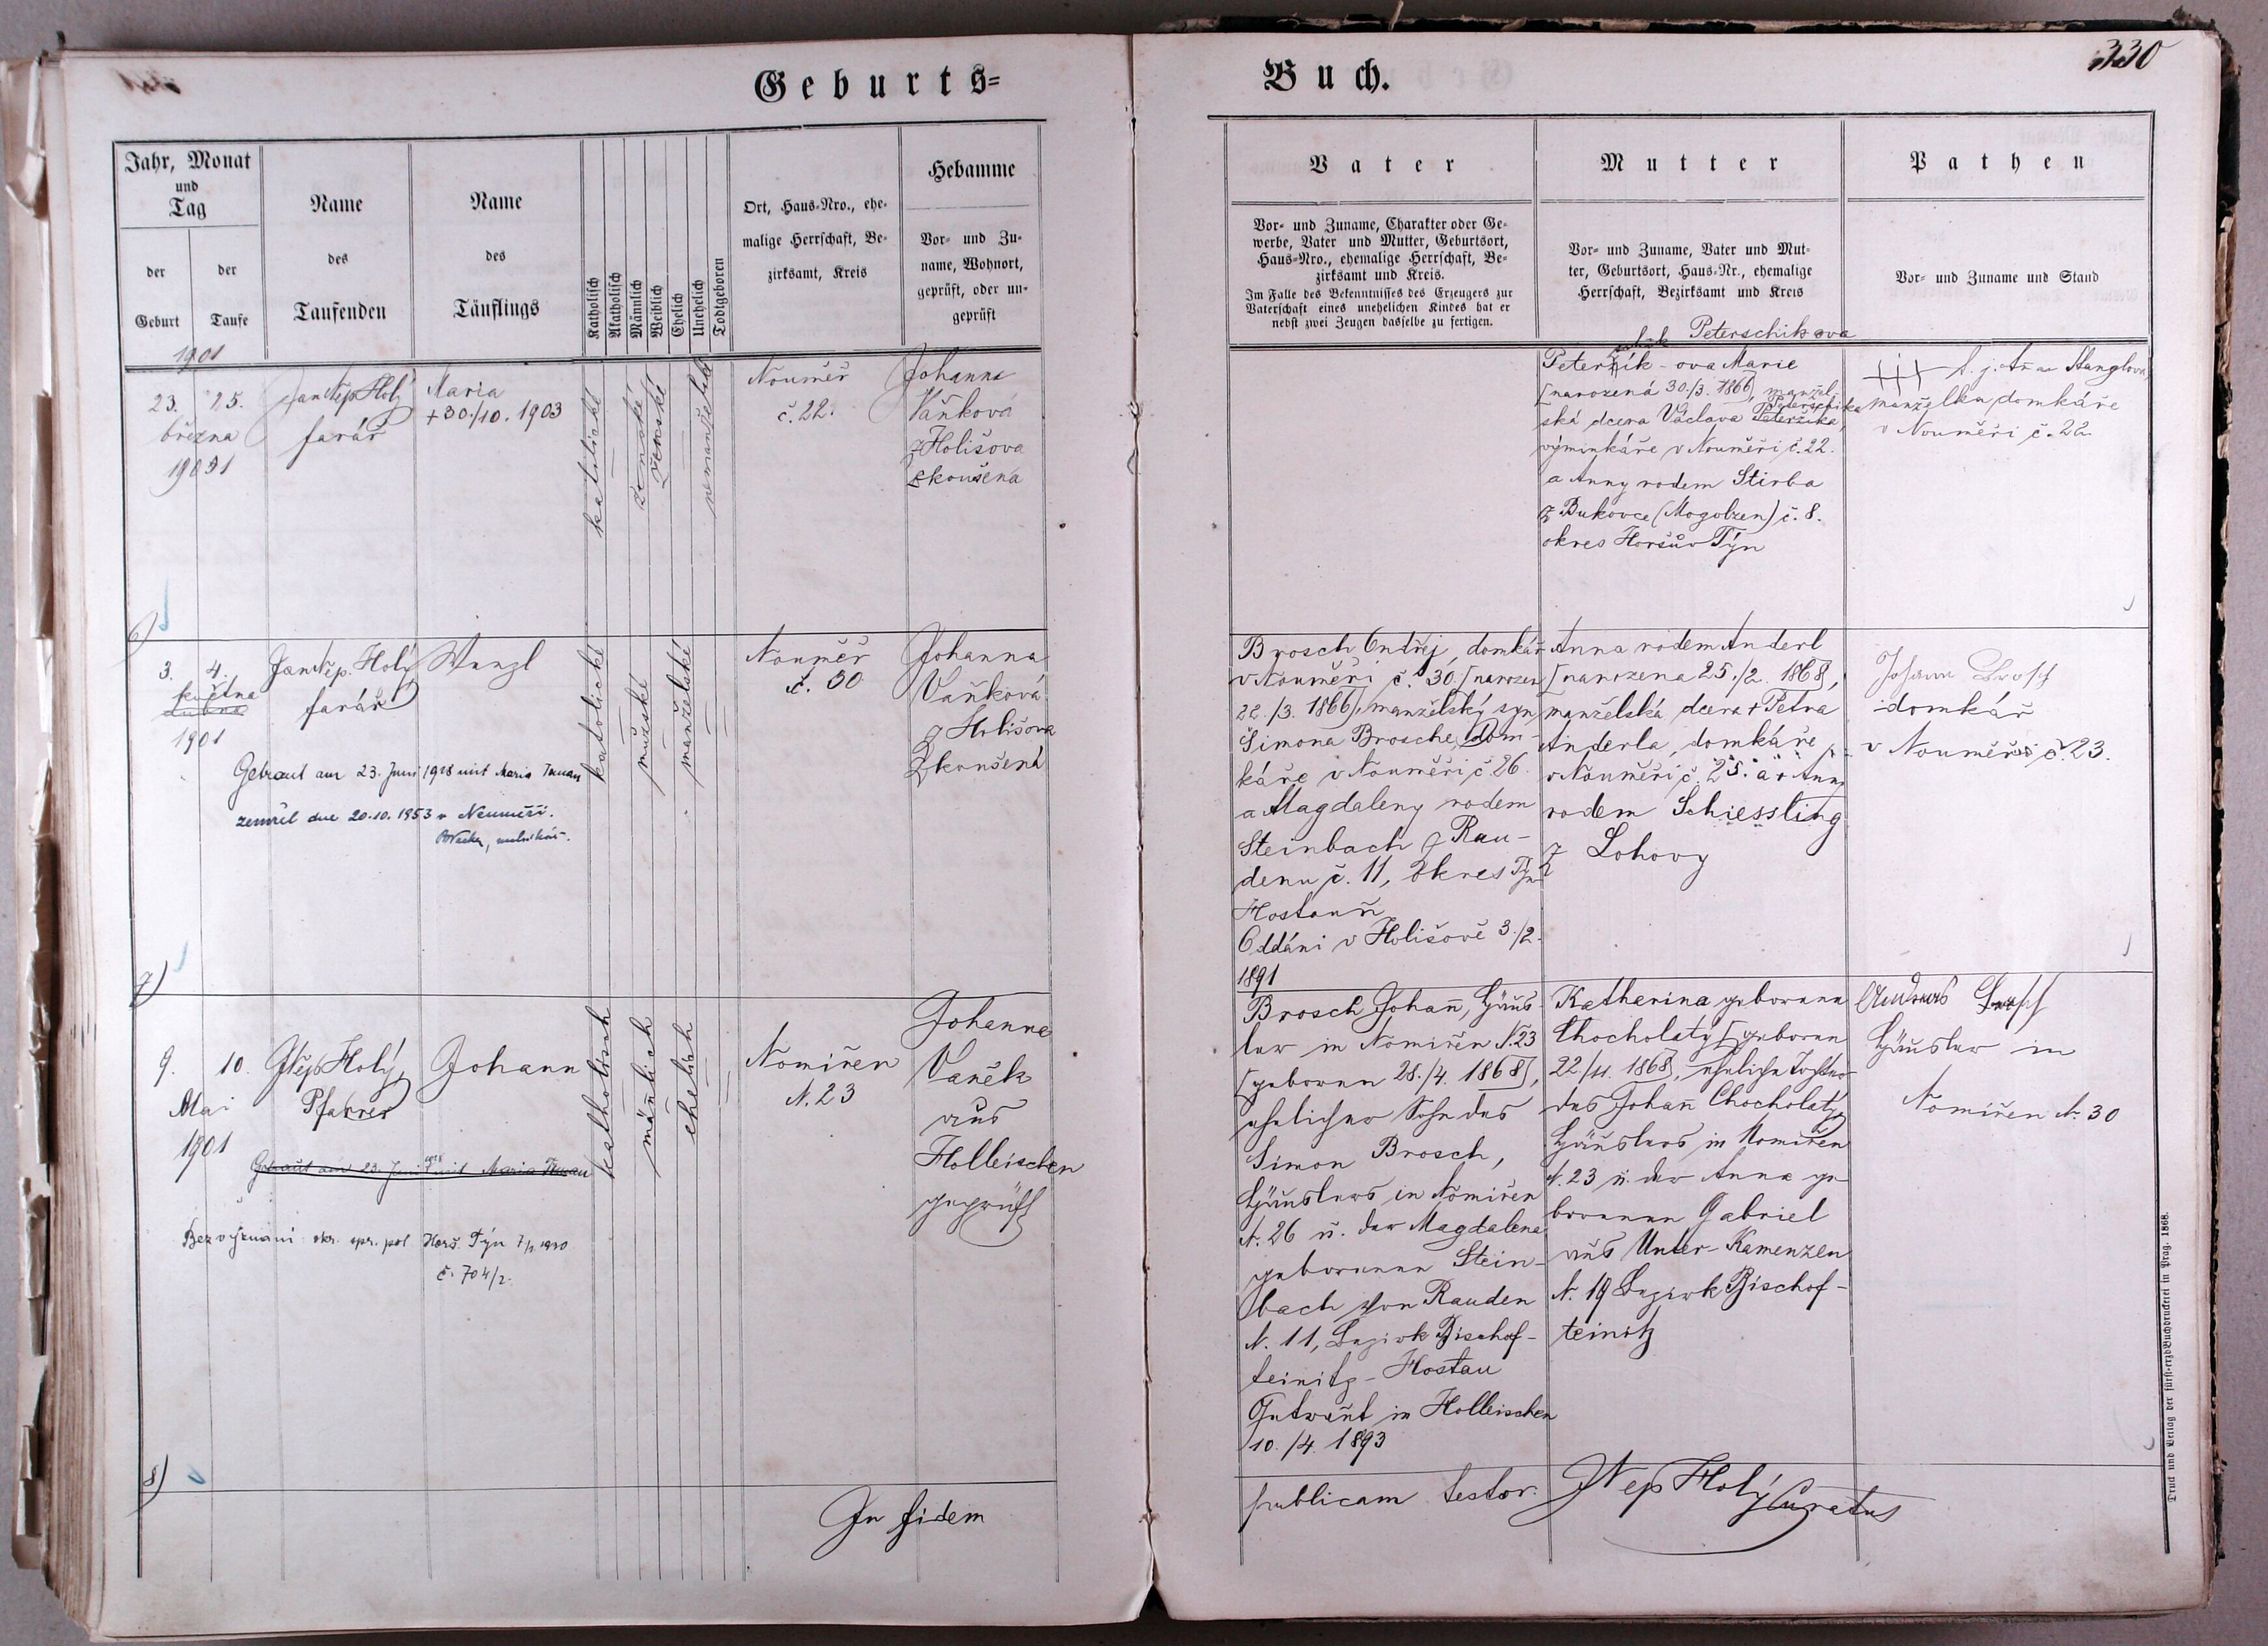 330
Geburts=
Buch.
Jahr, Monat
und
Tag
der
Geburt
der
Taufe
Name
des
Taufenden
Name
des
Täuflings
Katholisch
Akatholisch
Männlich
Weiblich
Ehelich
Unehelich
Todtgeboren
Ort, Haus-Nro., ehe-
malige Herrschaft, Be-
zirksamt, Kreis
Hebamme
Vor- und Zu-
name, Wohnort,
geprüft, oder un-
geprüft
Vater
Vor- und Zuname, Charakter oder Ge-
werbe, Vater und Mutter, Geburtsort,
Haus-Nro., ehemalige Herrschaft, Be-
zirksamt und Kreis.
Im Falle des Bekenntnisses des Erzeugers zur
Vaterschaft eines unehelichen Kindes hat er
nebst zwei Zeugen dasselbe zu fertigen.
Mutter
Vor- und Zuname, Vater und Mut-
ter, Geburtsort, Haus-Nr., ehemalige
Herrschaft, Bezirksamt und Kreis
Pathen
Vor- und Zuname und Stand
1901
23. 25.
března
1901
Jan Nep. Holý
farář
Maria
+30./10. 1903
katolické
ženské
ženské
nemanželské
Nouměř
č. 22.
Johanna
Vaňková
z Holišova
zkoušená
Peterschikova
Peteržík-ova Marie
[narozená 30./3. 1866], manžel-
ská dcera Václava Peteržíka,
Peterschika
výminkáře v Nouměři č. 22.
a Anny rodem Stirba
z Bukovce (Mogolzen) č. 8.
okres Horšův Týn
+++ Stanglova,
manželka domkáře
v Nouměři č. 22
6)
3. 4.
května
dubna
1901
Jan Nep. Holý
farář
Wenzl
katolické
mužské
manželské
Nouměř
č. 30
Johanna
Vaňková
z Holišova
zkoušená
Getraut am 23. Juni 1928 mit Maria
zemřel dne 20.10.1953 v Neuměři.
Brosch Ondřej, domkář
v Nouměři č. 30. [narozen
22./3. 1866], manželský syn
Šimona Brosche, dom-
káře v Nouměři č. 26
a Magdaleny rodem
Steinbach z Rau-
denu č. 11, okres Týn
Hostouň
Oddáni v Holišově 3./2.
1891
Anna rodem Anderl
[narozena 25./2. 1868],
manželská dcera + Petra
Anderla, domkáře
v Nouměři č. 25. a + Anny
rodem Schiessling
z Lohovy
Johann Brosch
domkář
v Nouměři č. 23.
7)
9. 10.
Mai
1901
JNep Holý,
Pfarrer
Johann
katholisch
männlich
ehelich
Nomiřen
N. 23
Johanna
Vaněk
aus
Holleischen
geprüft
Getraut am 23. Juni 1928 mit Maria
Bez vyznání okr. spr. pol. Horš. Týn 7/1 1920
č. 704/2.
Brosch Johann, Häus-
ler in Nomiřen N. 23
[geboren 28./4. 1868],
ehelicher Sohn des
Simon Brosch,
Häuslers in Nomiřen
N. 26 u. der Magdalena
geborenen Stein-
bach von Rauden
N. 11, Bezirk Bischof-
teinitz-Hostau
Getraut in Holleischen
10./4. 1893
Katharina geborene
Chocholatý [geboren
22./11. 1868], eheliche Tochter
des Johann Chocholatý,
Häuslers in Nomiřen
N. 23 u. der Anna ge-
borenen Gabriel
aus Unter-Kamenzen
N. 19 Bezirk Bischof-
teinitz
Andreas Brosch
Häusler in
Nomiřen N. 30
8)
In fidem
publicam testor. JNep Holý Curatus
Druck und Verlag der fürst-erzb. Buchdruckerei in Prag. 1868.